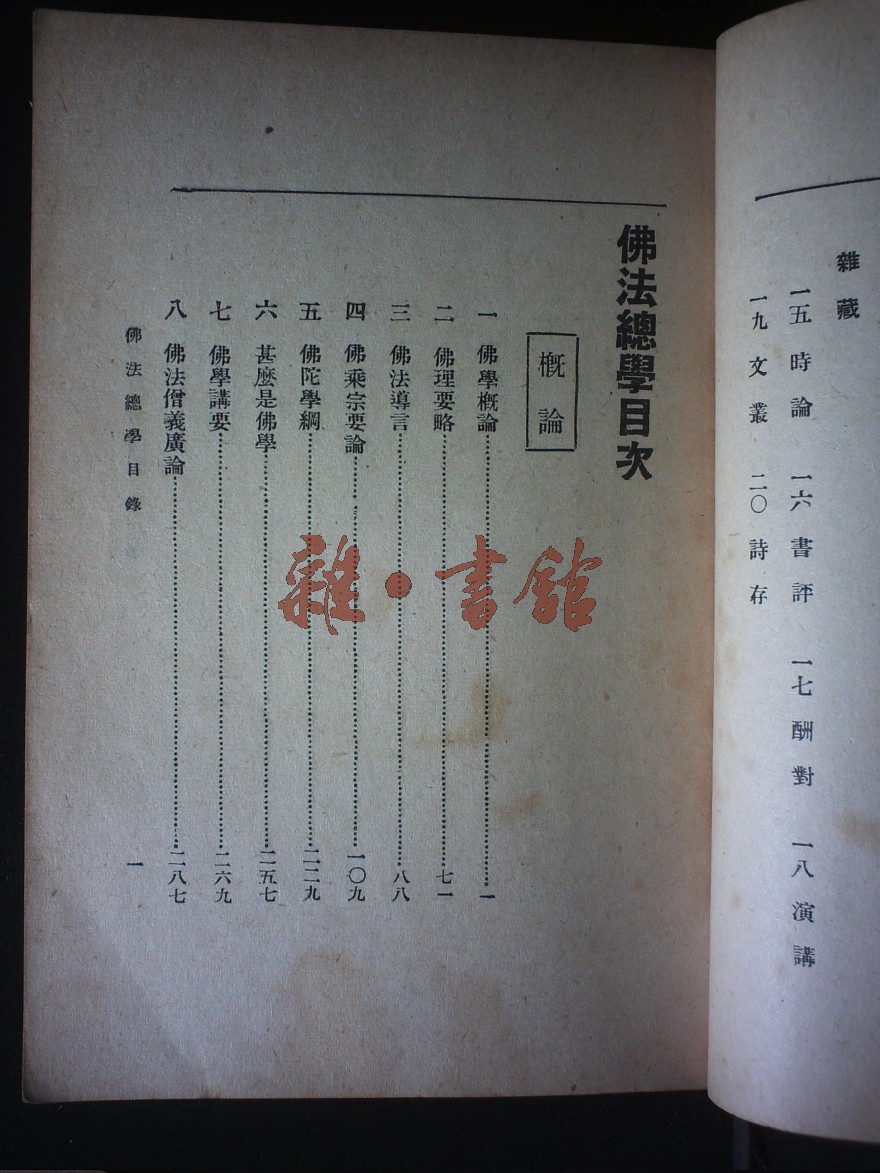 雜藏
一五時論 一六書評 一七酬對 一八演講
一九文叢 二〇詩存
佛法總學目次
概論
一 佛學概論………一
二 佛理要略………七一
三 佛法導言………八八
四 佛乘宗要論………一〇九
五 佛陀學綱………二二九
六 甚麼是佛學………二五七
七 佛學講要………二六九
八 佛法僧義廣論………二八七
佛法總學目錄
一
雜·書館